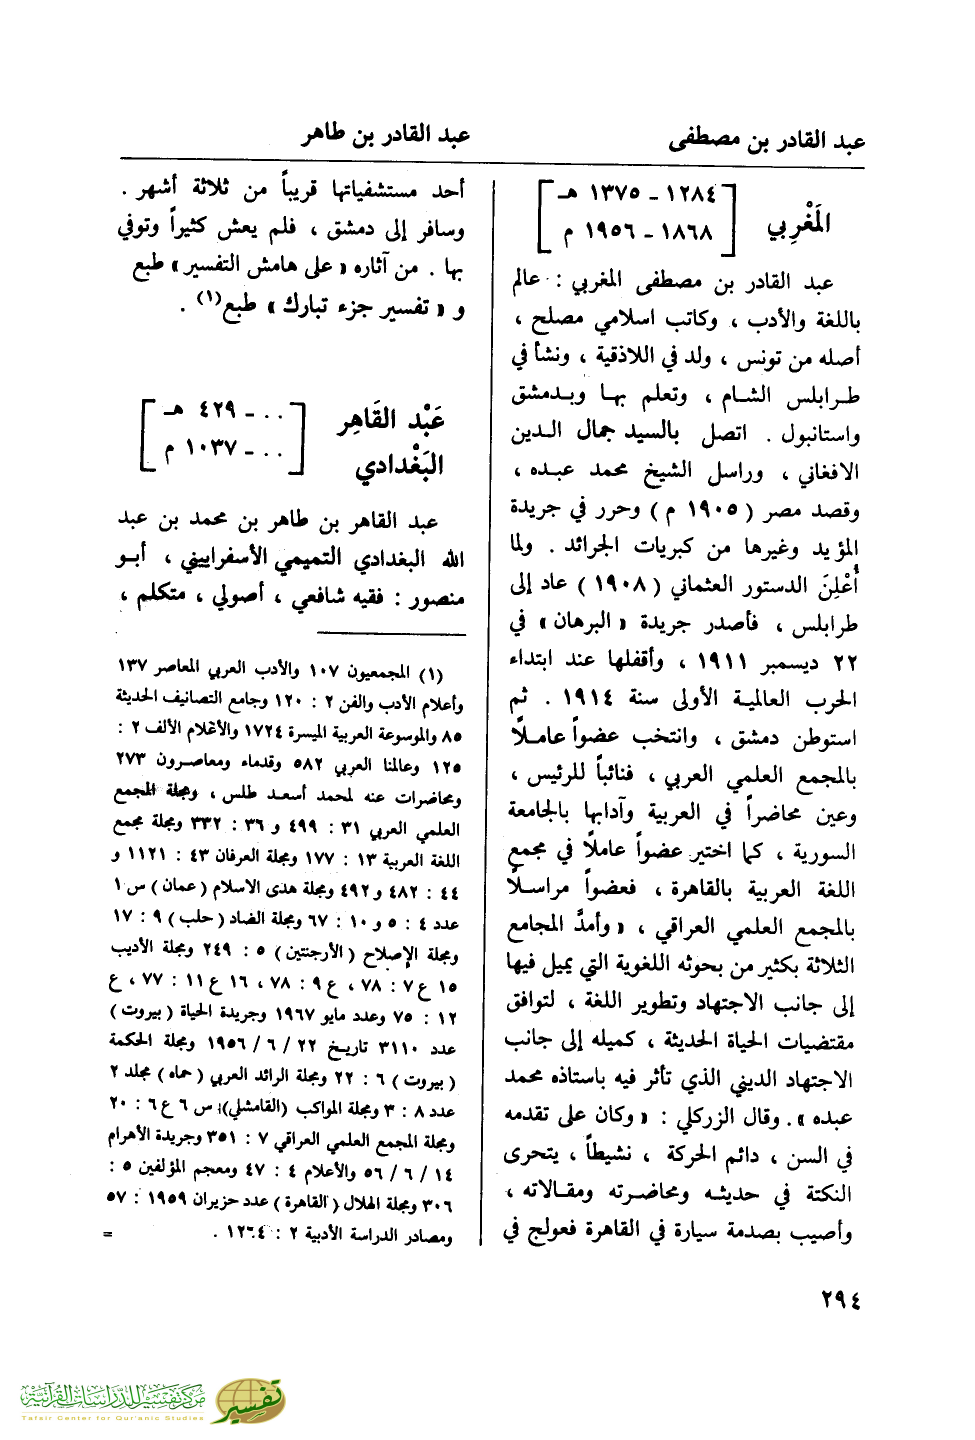 عبد القادر بن مصطفى
عبد القادر بن طاهر
المَغْرِبي
[ ١٢٨٤ - ١٣٧٥ هـ
١٨٦٨ - ١٩٥٦ م ]
عبد القادر بن مصطفى المغربي : عالم
باللغة والأدب ، وكاتب اسلامي مصلح ،
أصله من تونس ، ولد في اللاذقية ، ونشأ في
طرابلس الشام ، وتعلم بها وبدمشق
واستانبول . اتصل بالسيد جمال الدين
الافغاني ، وراسل الشيخ محمد عبده ،
وقصد مصر ( ١٩٠٥ م ) وحرر في جريدة
المؤيد وغيرها من كبريات الجرائد . ولما
أُعْلِنَ الدستور العثماني ( ١٩٠٨ ) عاد إلى
طرابلس ، فأصدر جريدة « البرهان » في
٢٢ ديسمبر ١٩١١ ، وأقفلها عند ابتداء
الحرب العالمية الأولى سنة ١٩١٤ . ثم
استوطن دمشق ، وانتخب عضواً عاملاً
بالمجمع العلمي العربي ، فنائباً للرئيس ،
وعين محاضراً في العربية وآدابها بالجامعة
السورية ، كما اختير عضواً عاملاً في مجمع
اللغة العربية بالقاهرة ، فعضواً مراسلاً
بالمجمع العلمي العراقي ، « وأمدَّ المجامع
الثلاثة بكثير من بحوثه اللغوية التي يميل فيها
إلى جانب الاجتهاد وتطوير اللغة ، لتوافق
مقتضيات الحياة الحديثة ، كميله إلى جانب
الاجتهاد الديني الذي تأثر فيه باستاذه محمد
عبده » . وقال الزركلي : « وكان على تقدمه
في السن ، دائم الحركة ، نشيطاً ، يتحرى
النكتة في حديثه ومحاضرته ومقالاته ،
وأصيب بصدمة سيارة في القاهرة فعولج في
أحد مستشفياتها قريباً من ثلاثة أشهر .
وسافر إلى دمشق ، فلم يعش كثيراً وتوفي
بها . من آثاره « على هامش التفسير » طبع
و « تفسير جزء تبارك » طبع(١) .
عَبْد القَاهِر
البَغْدادي
[ . . - ٤٢٩ هـ
. . - ١٠٣٧ م ]
عبد القاهر بن طاهر بن محمد بن عبد
الله البغدادي التميمي الأسفراييني ، أبو
منصور : فقيه شافعي ، أصولي ، متكلم ،
(١) المجمعيون ١٠٧ والأدب العربي المعاصر ١٣٧
وأعلام الأدب والفن ٢ : ١٢٠ وجامع التصانيف الحديثة
٨٥ والموسوعة العربية الميسرة ١٧٢٤ والأعلام الألف ٢ :
١٢٥ وعالمنا العربي ٥٨٢ وقدماء ومعاصرون ٢٧٣
ومحاضرات عنه لمحمد أسعد طلس ، ومجلة المجمع
العلمي العربي ٣١ : ٤٩٩ و ٣٦ : ٣٣٢ ومجلة مجمع
اللغة العربية ١٣ : ١٧٧ ومجلة العرفان ٤٣ : ١١٢١ و
٤٤ : ٤٨٢ و ٤٩٢ ومجلة هدى الاسلام ( عمان ) س ١
عدد ٤ : ٥ و ١٠ : ٦٧ ومجلة الضاد ( حلب ) ٩ : ١٧
ومجلة الإصلاح ( الأرجنتين ) ٥ : ٢٤٩ ومجلة الأديب
١٥ ع ٧ : ٧٨ ، ع ٩ : ٧٨ ، ١٦ ع ١١ : ٧٧ ، ع
١٢ : ٧٥ وعدد مايو ١٩٦٧ وجريدة الحياة ( بيروت )
عدد ٣١١٠ تاريخ ٢٢ / ٦ / ١٩٥٦ ومجلة الحكمة
( بيروت ) ٦ : ٢٢ ومجلة الرائد العربي ( حماه ) مجلد ٢
عدد ٨ : ٣ ومجلة المواكب ( القامشلي ) س ٦ ع ٦ : ٢٠
ومجلة المجمع العلمي العراقي ٧ : ٣٥١ وجريدة الأهرام
١٤ / ٦ / ٥٦ والأعلام ٤ : ٤٧ ومعجم المؤلفين ٥ :
٣٠٦ ومجلة الهلال ( القاهرة ) عدد حزيران ١٩٥٩ : ٥٧
ومصادر الدراسة الأدبية ٢ : ١٢٦٤ . =
٢٩٤
تفسير
مركز تفسير للدراسات القرآنية
Tafsir Center for Qur'anic Studies